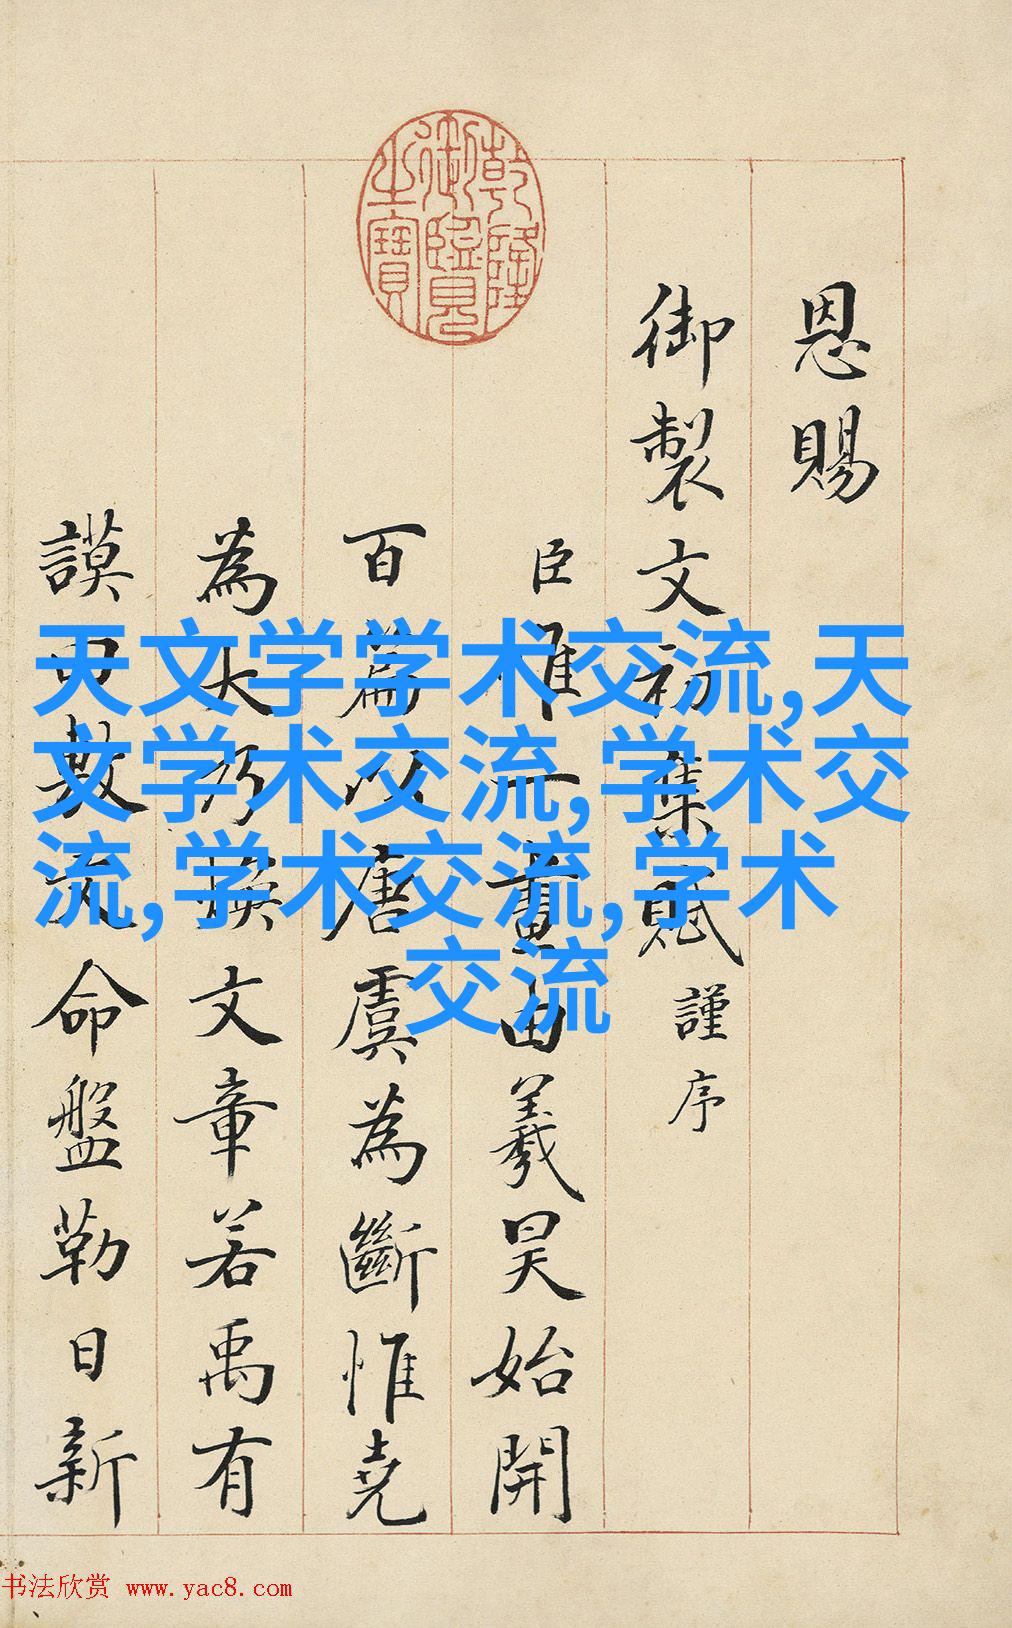 乾隆御覽之寶
恩賜
御製文初集賦謹序
臣惟一畫由羲昊始開
百篇以唐虞為斷惟堯
為大乃煥文章若禹有
謨曰敷文命盤勒日新
天文学学术交流,天
文学术交流,学术交
流,学术交流,学术
交流
书法欣赏 www.yac8.com